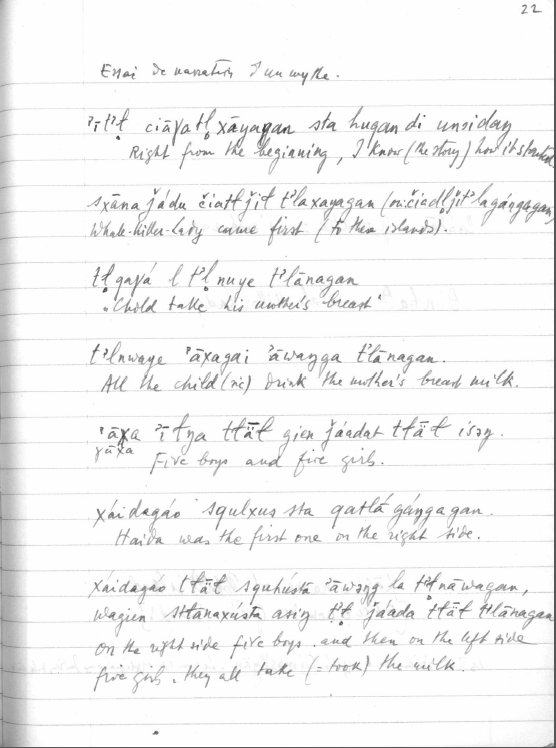 22
Essai de narration d'un mythe.
'īt'ł̣ ciāɣatł̣ xāyagan sta hugan di unsidaŋ
Right from the beginning, I know (the story) how it started
sxāna ǰádu čiatł ǰit t'laxayagan (or: čiadł ǰit'lagáŋgagan)
Whale-killer-lady came first (to these islands).
tł̣gaɣá l t'ł̣nuye t'lānagan
"Child take his mother's breast"
t'lnwaye 'āxagai 'āwaŋga t'lānagan.
All the child (sic) drink the mother's breast milk.
'āxa 'ītŋa tłāł gien ǰáadat tłāł isəŋ.
ɣāxa
Five boys and five girls.
xáidagáo squlxus sta qatłá gáŋgagan.
Haida was the first one on the right side.
xáidagáo tłāł squhústa 'āwəŋg la t'ł̣nāwagan,
wagien sttanaxústa asiŋ t'ł̣ ǰáada tłāł t'lānagan
on the right side five boys and then on the left side
five girls. they all take (= took) the milk.